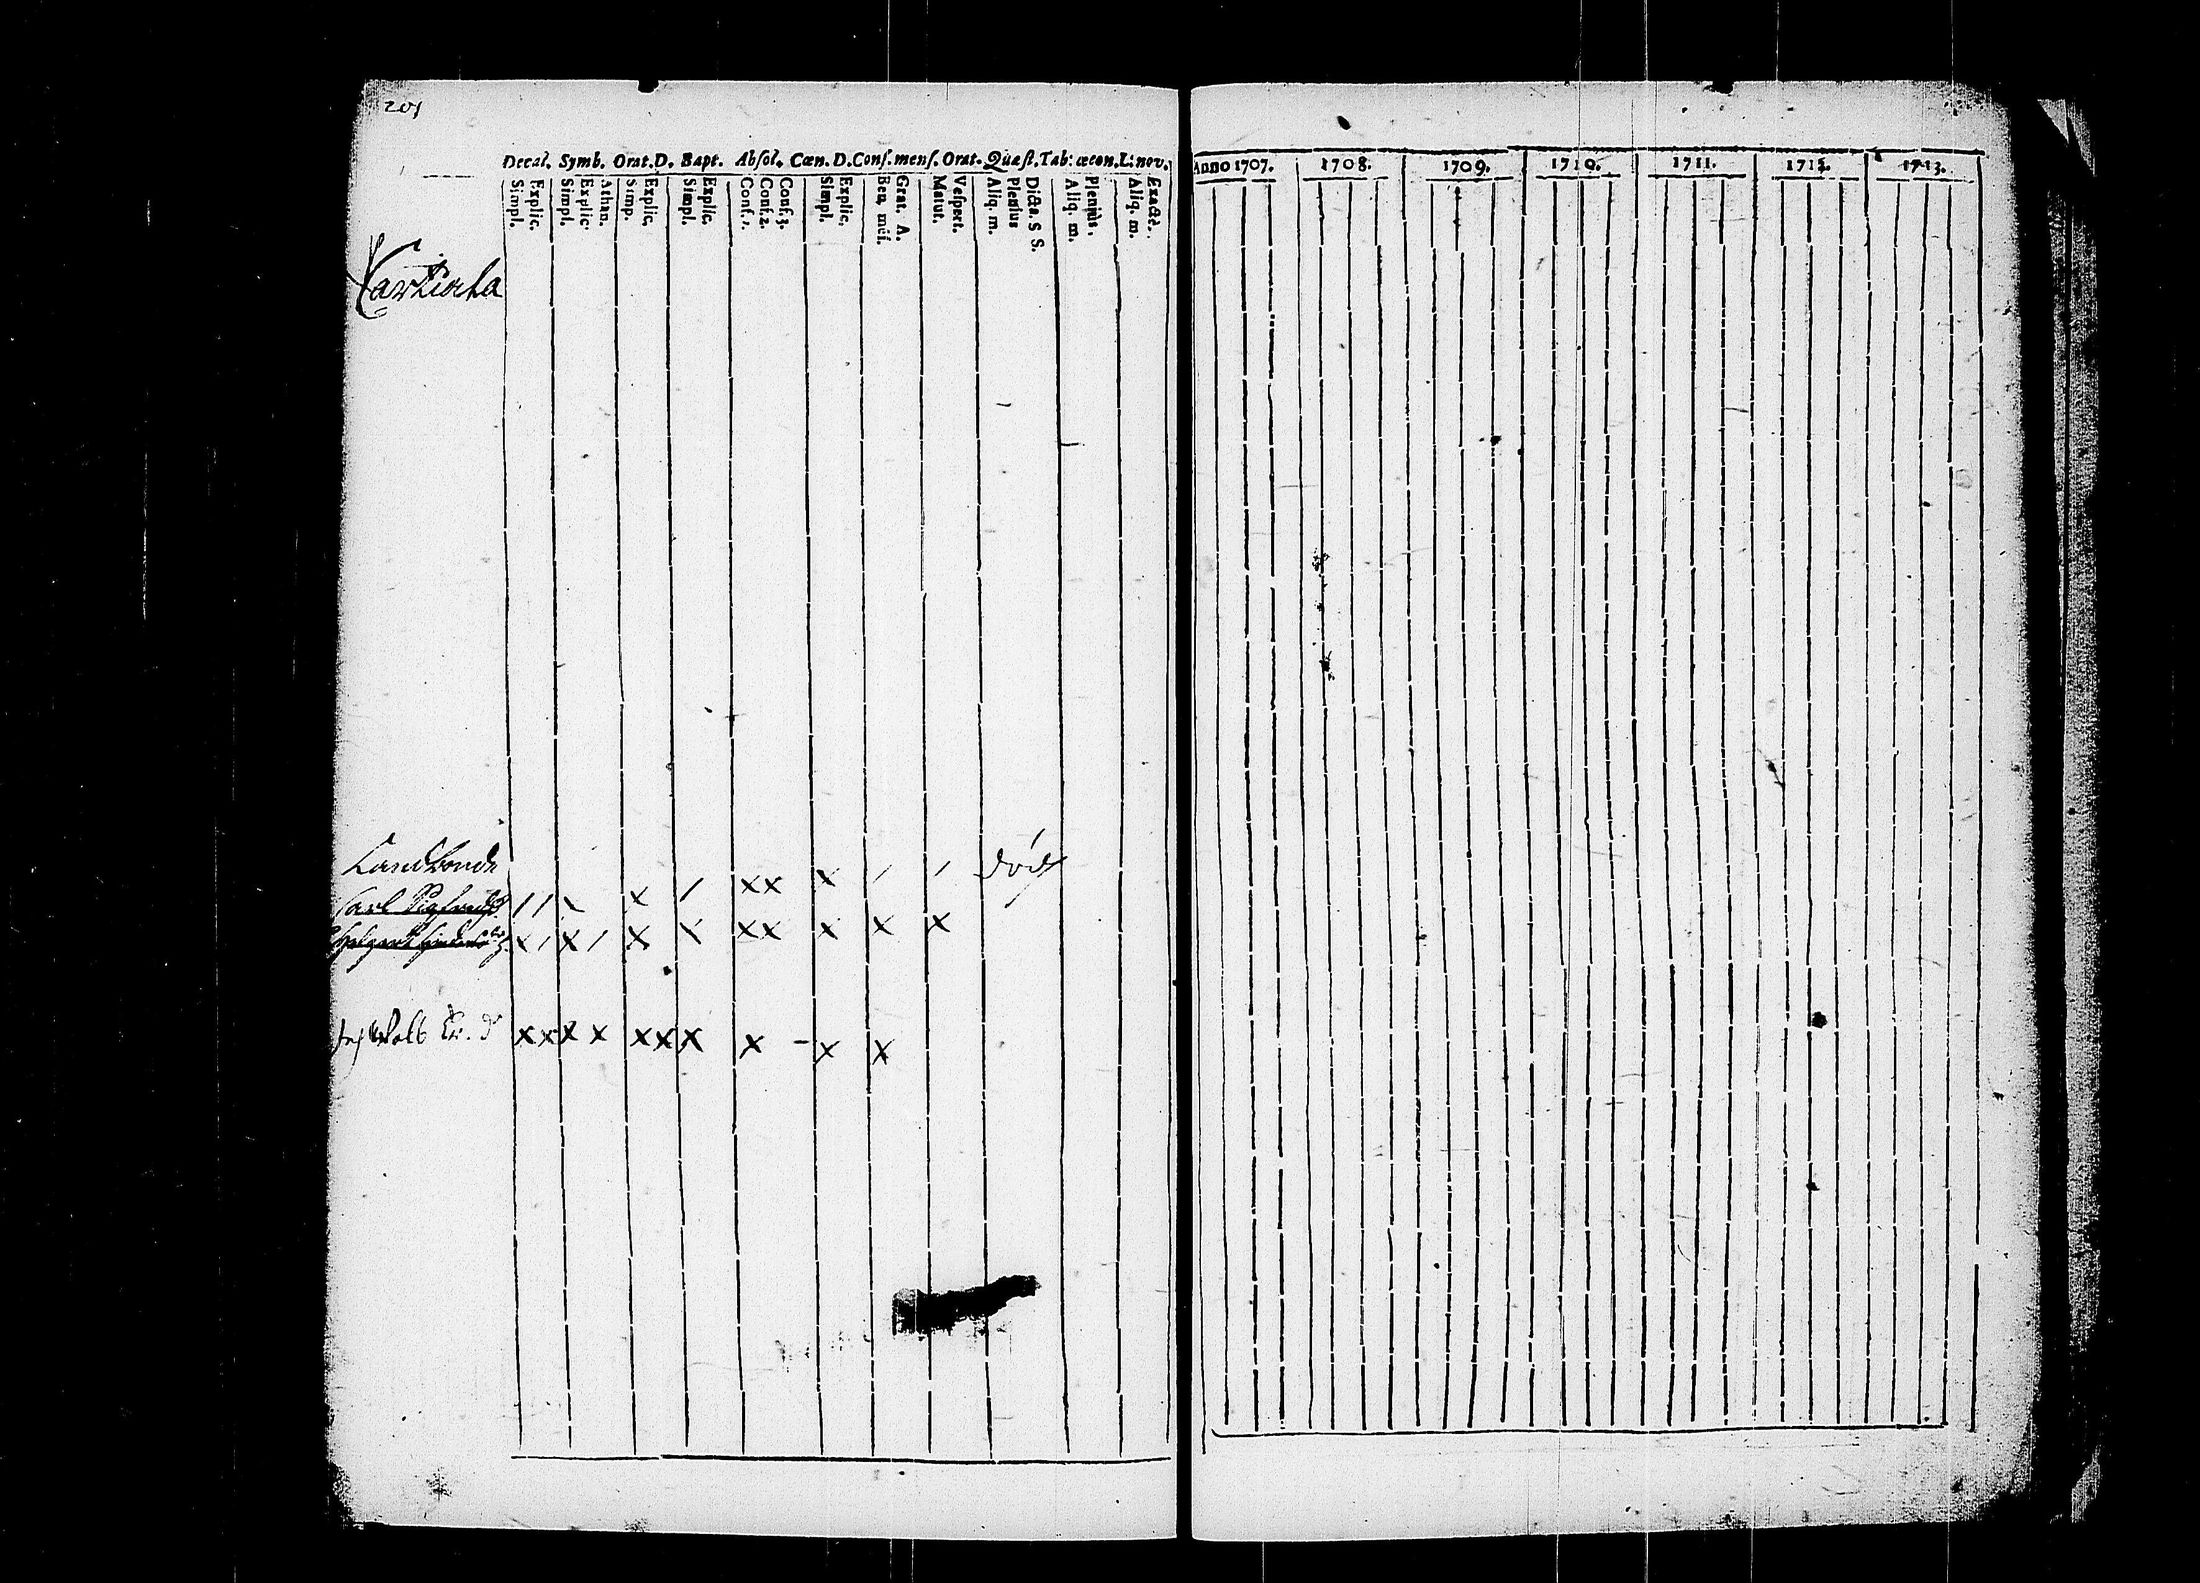 201
Decal. Symb. Orat.D. Bapt. Absol. Cœn. D. Conf. mens. Orat. Quæst. Tab: œcon. L: nov.
Simpl. Explic. Simpl. Explic. Athan. Simp. Explic. Simpl. Explic. Conf. 1. Conf. 2. Conf. 3. Simpl. Explic. Ben. mēs. Grat. A. Matut. Vespert. Aliq. m. Plenius Dicta. S S. Aliq. m. Pleniùs. Aliq. m. Exactè.
Landbonde
Carl
/ / \ x / x x x / / död
x / x / x \ x x x x x
x x x x x x x x - x x
Anno 1707. 1708. 1709. 1710. 1711. 1712. 1713.